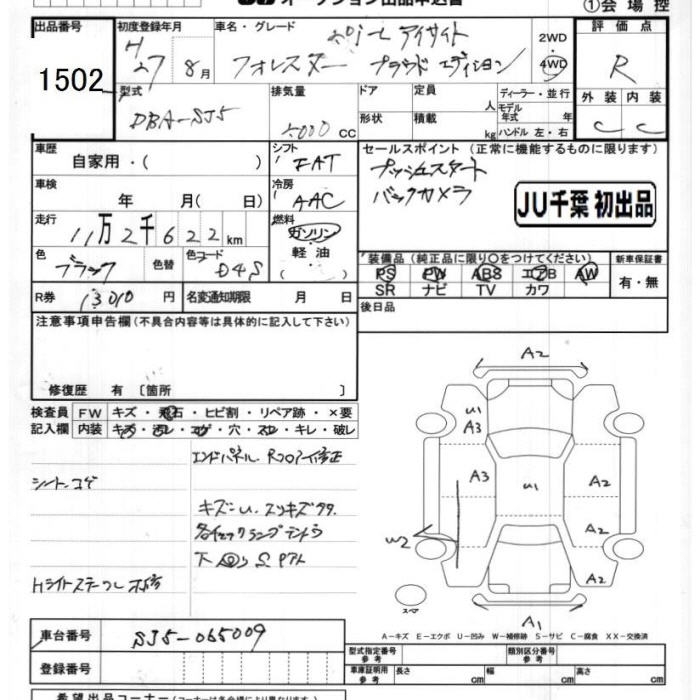 ①会場控
出品番号 初度登録年月 車名・グレード 評価点
1502 H27 8月 フォレスター 2.0i-L アイサイト プラウドエディション 2WD 4WD R
型式 排気量 ドア 定員 人 ディーラー・並行 外装 内装
DBA-SJ5 2000 CC 形状 積載 kg モデル年式 年 ハンドル 左・右 C C
車歴 自家用・( ) シフト FAT セールスポイント (正常に機能するものに限ります)
車検 年 月( 日) 冷房 AAC プッシュスタート
バックカメラ
JU千葉 初出品
走行 11万2千622km 燃料 ガソリン・軽油 ( )
色 ブラック 色替 色コード D4S 装備品 (純正品に限り○をつけてください) 新車保証書
PS PW ABS エアB AW 有・無
SR ナビ TV カワ
R券 13010円 名変通知期限 月 日 後日品
注意事項申告欄 (不具合内容等は具体的に記入して下さい)
修復歴 有 [箇所 ]
検査員 FW キズ・飛石・ヒビ割・リペア跡・×要
記入欄 内装 キズ・汚レ・コゲ・穴・スレ・キレ・破レ
エンドパネル、Rフロアー修正
シートコゲ
キズ-U、スリキズ
各チェックランプテントウ
A2
U1
A3
A3
U1
A2
A2
U2
A2
スペア
A1
A-キズ E-エクボ U-凹み W-補修跡 S-サビ C-腐食 XX-交換済
車台番号 SJ5-065009
登録番号
型式指定番号 参考 類別区分番号 参考
車庫証明用 参考 長さ cm 幅 cm 高さ cm
希望出品コーナー